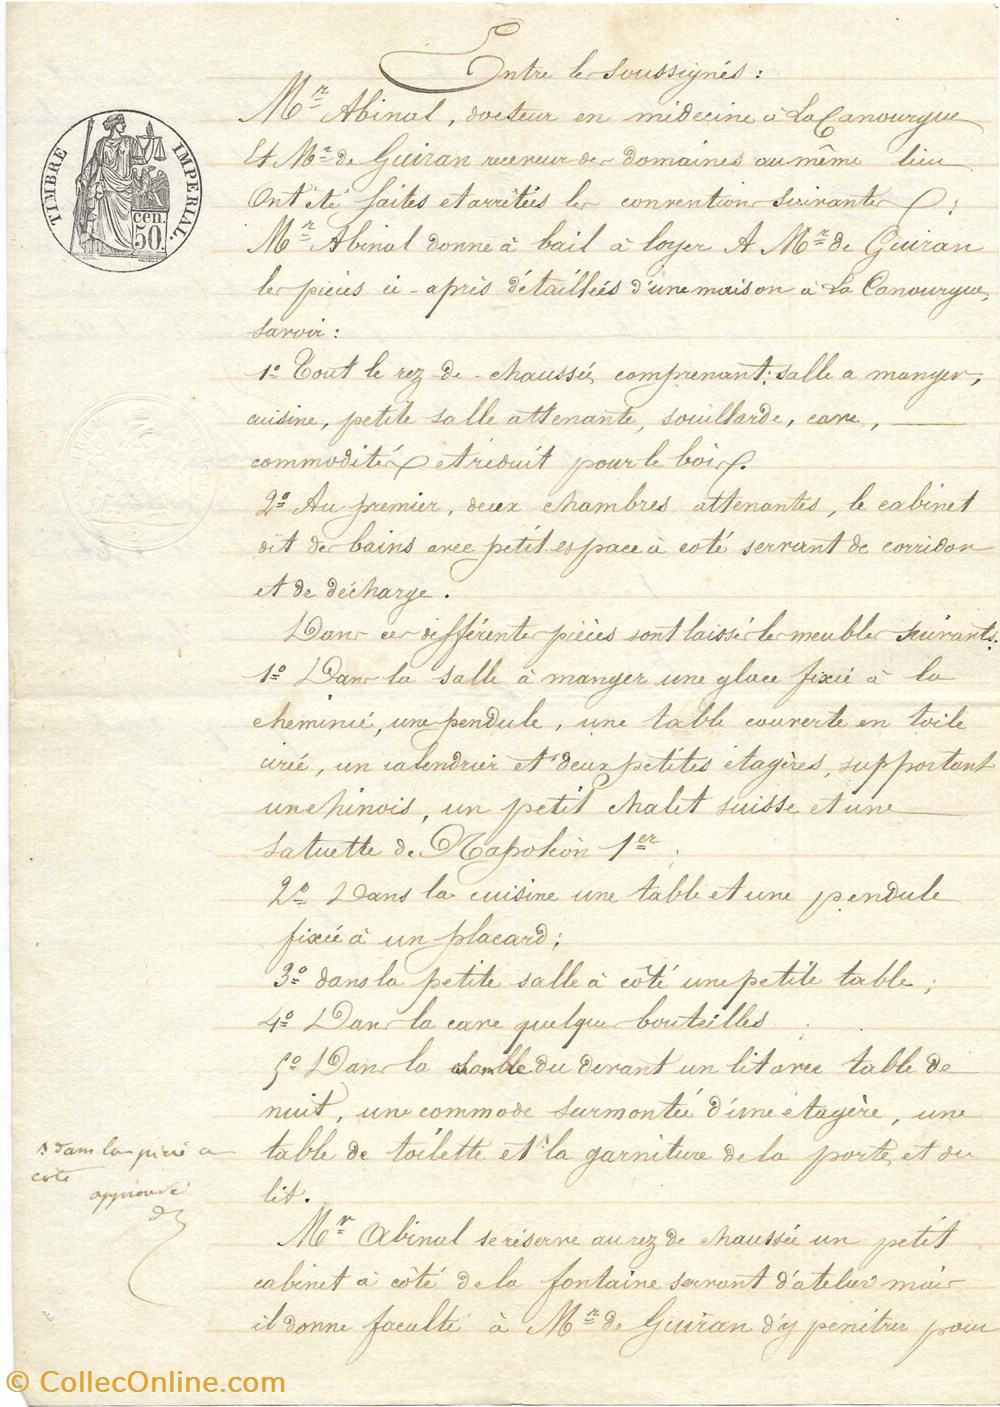 Entre les soussignés :
Mr Abinal, docteur en médecine à La Canourgue
Et Mr de Guiran receveur des domaines au même lieu
Ont été faites et arrêtées les conventions suivantes :
Mr Abinal donne à bail à loyer A Mr de Guiran
les pièces ci-après détaillées d'une maison à La Canourgue,
savoir :
TIMBRE IMPERIAL.
cen.
50.
1º Tout le rez de chaussée, comprenant : salle a manger,
cuisine, petite salle attenante, souillarde, cave,
commodités et réduit pour le bois.
2º Au premier, deux chambres attenantes, le cabinet
dit de bains avec petit espace à coté servant de corridor
et de décharge.
Dans ces différentes pièces sont laissés les meubles suivants :
1º Dans la salle à manger une glace fixée à la
cheminée, une pendule, une table couverte en toile
cirée, un calendrier et deux petites étagères, supportant
un chinois, un petit chalet suisse et une
satuette de Napoléon 1er ;
2º Dans la cuisine une table et une pendule
fixée à un placard ;
3º dans la petite salle à côté une petite table ;
4º Dans la cave quelques bouteilles
5º Dans la chambre du devant un lit avec table de
nuit, une commode surmontée d'une étagère, une
table de toilette et la garniture de la porte et du
lit.
dans la pièce a
coté
approuvé
Mr Abinal se réserve au rez de chaussée un petit
cabinet à côté de la fontaine servant d'atelier mais
il donne faculté à Mr de Guiran d'y pénétrer pour
© CollecOnline.com